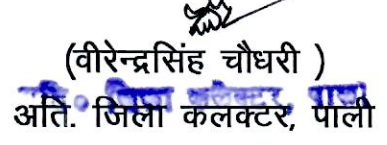 (वीरेन्द्रसिंह चौधरी )
अति. जिला कलक्टर, पाली